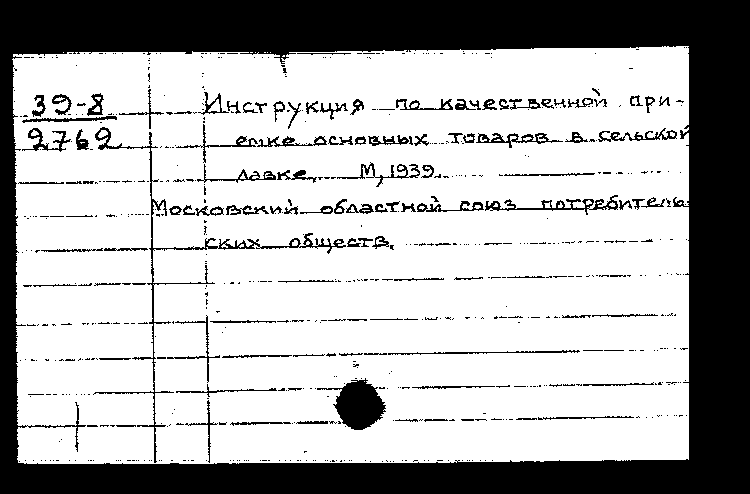 39-8
2762
Инструкция по качественной при-
емке основных товаров в сельской
лавке. М, 1939.
Московский областной союз потребитель-
ских обществ.